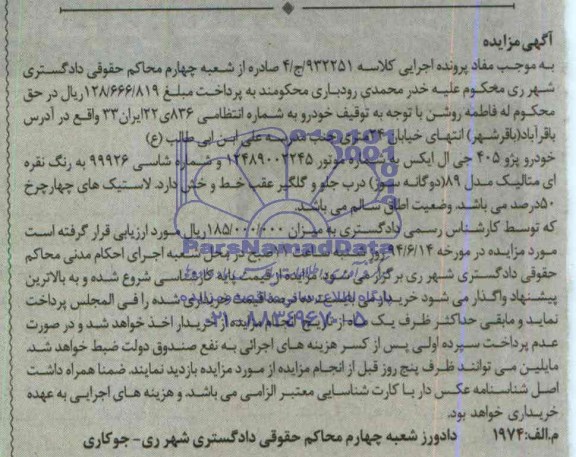 آگهی مزایده
به موجب مفاد پرونده اجرایی کلاسه ۹۳۲۲۵۱/ج/۴ صادره از شعبه چهارم محاکم حقوقی دادگستری
شهر ری محکوم علیه خدر محمدی رودباری محکومند به پرداخت مبلغ ۱۲۸/۶۶۶/۸۱۹ریال در حق
محکوم له فاطمه روشن با توجه به توقیف خودرو به شماره انتظامی ۸۳۶ی۲۲ایران۳۳ واقع در آدرس
باقرآباد(باقرشهر) انتهای خیابان ۲۴متری جنب مدرسه علی ابن ابی طالب (ع)
خودرو پژو ۴۰۵ جی ال ایکس به شماره موتور ۱۲۴۸۹۰۰۲۲۴۵ و شماره شاسی ۹۹۹۲۶ به رنگ نقره
ای متالیک مدل ۸۹(دوگانه سوز) درب جلو و گلگیر عقب خط و خش دارد. لاستیک های چهارچرخ
۵۰درصد می باشد. وضعیت اطاق سالم می باشد.
که توسط کارشناس رسمی دادگستری به میزان ۱۸۵/۰۰۰/۰۰۰ریال مورد ارزیابی قرار گرفته است
مورد مزایده در مورخه ۹۴/۶/۱۴ روز شنبه ساعت صبح در محل شعبه اجرای احکام مدنی محاکم
حقوقی دادگستری شهر ری برگزار می شود. مزایده از قیمت پایه کارشناسی شروع شده و به بالاترین
پیشنهاد واگذار می شود خریدار می بایست ده درصد قیمت خریداری شده را فی المجلس پرداخت
نماید و مابقی حداکثر ظرف یک ماه از تاریخ انجام مزایده از خریدار اخذ خواهد شد و در صورت
عدم پرداخت سپرده اولی پس از کسر هزینه های اجرائی به نفع صندوق دولت ضبط خواهد شد.
مایلین می توانند ظرف پنج روز قبل از انجام مزایده از مورد مزایده بازدید نمایند. ضمنا همراه داشت
اصل شناسنامه عکس دار یا کارت شناسایی معتبر الزامی می باشد. و هزینه های اجرایی به عهده
خریداری خواهد بود.
م.الف:۱۹۷۴ دادورز شعبه چهارم محاکم حقوقی دادگستری شهر ری- جوکاری
ParsNamadData
۰۲۱-۸۸۳۴۹۶۷۰-۵